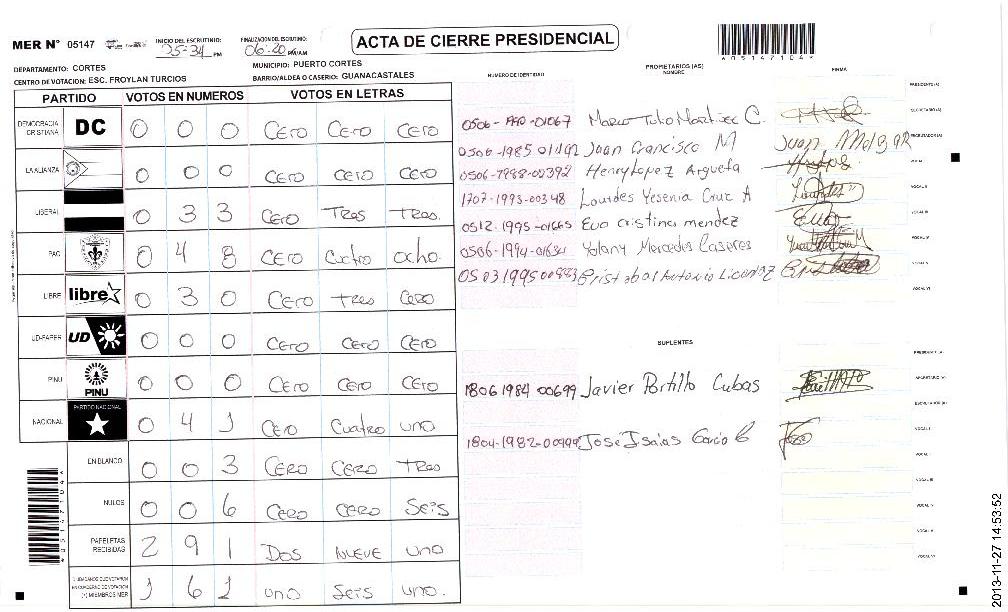 MER N° 05147
INICIO DEL ESCRUTINIO: 05:34 PM
FINALIZACION DEL ESCRUTINIO: 06:20 PM/AM
ACTA DE CIERRE PRESIDENCIAL
*05147104*
DEPARTAMENTO: CORTES
MUNICIPIO: PUERTO CORTES
CENTRO DE VOTACION: ESC. FROYLAN TURCIOS
BARRIO/ALDEA O CASERIO: GUANACASTALES
NUMERO DE IDENTIDAD
PROPIETARIOS (AS)
NOMBRE
FIRMA
PARTIDO VOTOS EN NUMEROS VOTOS EN LETRAS
DEMOCRACIA CRISTIANA DC 0 0 0 Cero Cero Cero
LA ALIANZA 0 0 0 Cero Cero Cero
LIBERAL 0 3 3 Cero Tres Tres.
PAC 0 4 8 Cero Cuatro ocho.
LIBRE libre 0 3 0 Cero Tres Cero
UD-FAPER UD 0 0 0 Cero Cero Cero
PINU PINU 0 0 0 Cero Cero Cero
NACIONAL PARTIDO NACIONAL 0 4 1 Cero Cuatro uno
EN BLANCO 0 0 3 Cero Cero Tres
NULOS 0 0 6 Cero Cero Seis
PAPELETAS RECIBIDAS 2 9 1 Dos Nueve uno
CIUDADANOS QUE VOTARON EN CUADERNO DE VOTACION (+) MIEMBROS MER 1 6 1 uno Seis uno.
Marco Tulio Martinez C.
0506-1985 01192 Juan Francisco M Juan
0506-1988-02392 Henry Lopez Argueta
1707-1993-00348 Lourdes Yesenia Cruz A Lourdes
0512-1995-01665 Eva cristina mendez Eva
Yolany Mercedes Caseres
Antonio
SUPLENTES
1806 1984 00699 Javier Portillo Cubas
1804-1982-00999 Jose Isaias Garcia
PRESIDENTE (A)
SECRETARIO (A)
ESCRUTADOR (A)
VOCAL I
VOCAL II
VOCAL III
VOCAL IV
VOCAL V
VOCAL VI
2013-11-27 14:53:52